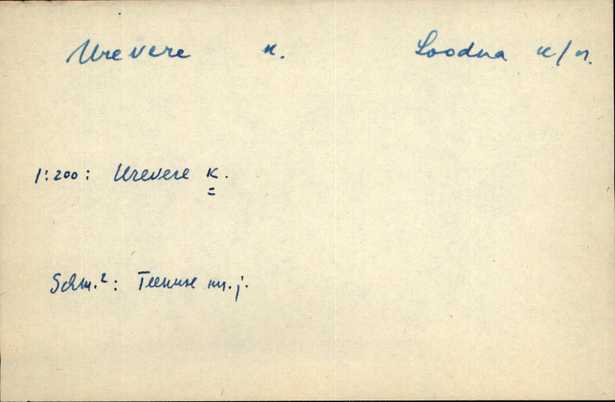 Urevere k. Loodna k/n.
1:200: Urevere k.
Schm.²: Teenuse m.j.